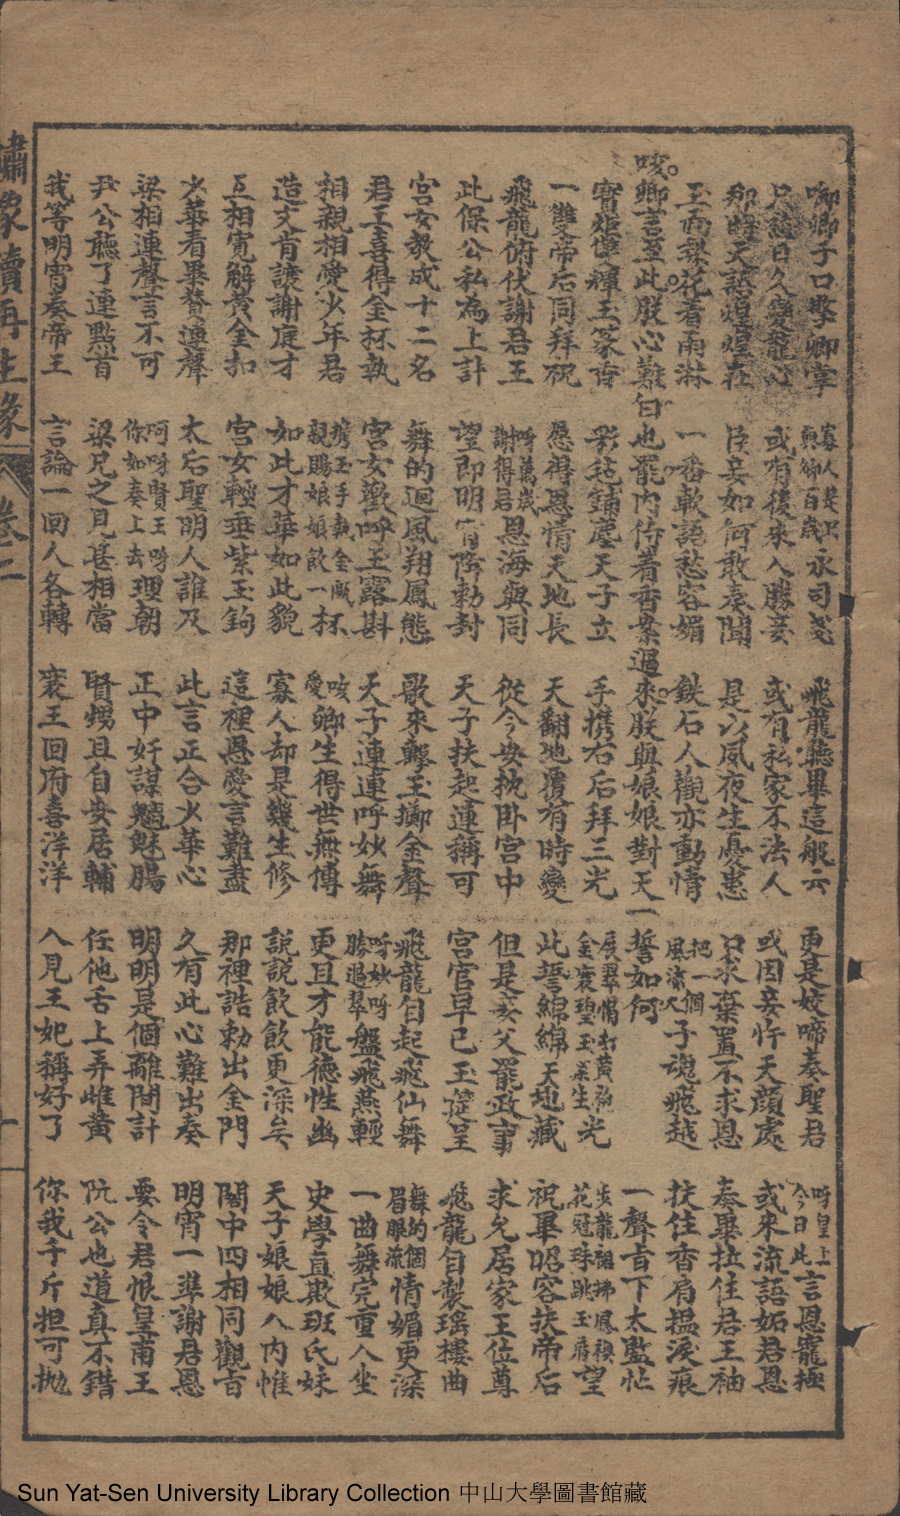 啣卿子口擎卿掌 寡人焚你煎卿百歲永司箋 飛龍聽畢這般云 更是姣啼奏聖君 呀皇上今日此言恩寵極
只慮日久變龍心 或有後來人勝妾 或有私家不法人 或因妾忤天顏處 或來流語妬君恩
那時天語煌煌在 臣妾如何敢奏聞 是以夙夜生憂患 只求棄置不求恩 奏畢拉住君王袖
玉面梨花着雨淋 一番軟語愁容媚 鉄石人觀亦動情 把一個風流人子魂飛越 扶住香肩揾淚痕
咳卿言至此朕心難白也罷內侍着香案過來朕與娘娘對天一誓如何 一聲旨下太監忙
寶炬煇輝玉篆奇 彩毡鋪塵天子立 手携右后拜三光 展翠 光 望
一雙帝后同拜祝 愿得恩情天地長 天翻地覆有時變 此誓綿綿天地藏 祝畢昭容扶帝后
飛龍俯伏謝君王 呀萬歲謝得君恩海與同 從今安枕卧宮中 但是妾父罷政事 求允居家王位尊
此保公私為上計 望即明宵降勅封 天子扶起連稱可 宮官早已玉筵呈 飛龍自製瑤樓曲
宮女教成十二名 舞的迴風翔鳳態 歌來擊玉擲金聲 飛龍自起飛仙舞 舞的個眉眼流情媚更深
君王喜得金杯執 宮女歡呼玉露斟 天子連連呼妙舞 呀妙呀勝過翠盤飛燕輕 一曲舞完重入坐
相親相愛少年君 携玉手執金甌親賜娘娘飲一杯 咳愛卿生得世無傳 更且才能德性幽 史學直欺班氏妹
造文肯讓謝庭才 如此才華如此貌 寡人却是幾生修 說說飲飲更深矣 天子娘娘入內帷
互相寬解黃金扣 宮女輕垂紫玉鉤 這裡恩愛言難盡 那裡誥勅出金門 閣中四相同觀旨
少華看畢贊連聲 太后聖明人誰及 此言正合少華心 久有此心難出奏 明宵一準謝君恩
梁相連聲言不可 呵呀賢王呀你如奏上去理朝 正中奸謀魑魅腸 明明是個離間計 要令君恨皇甫王
尹公聽了連點首 梁兄之見甚相當 賢甥且自安居輔 任他舌上弄雌黃 阮公也道真不錯
我等明宵奏帝王 言論一回人各轉 衮王回府喜洋洋 入見王妃稱好了 你我千斤担可抛
繡像續再生緣 卷二
Sun Yat-Sen University Library Collection 中山大學圖書館藏